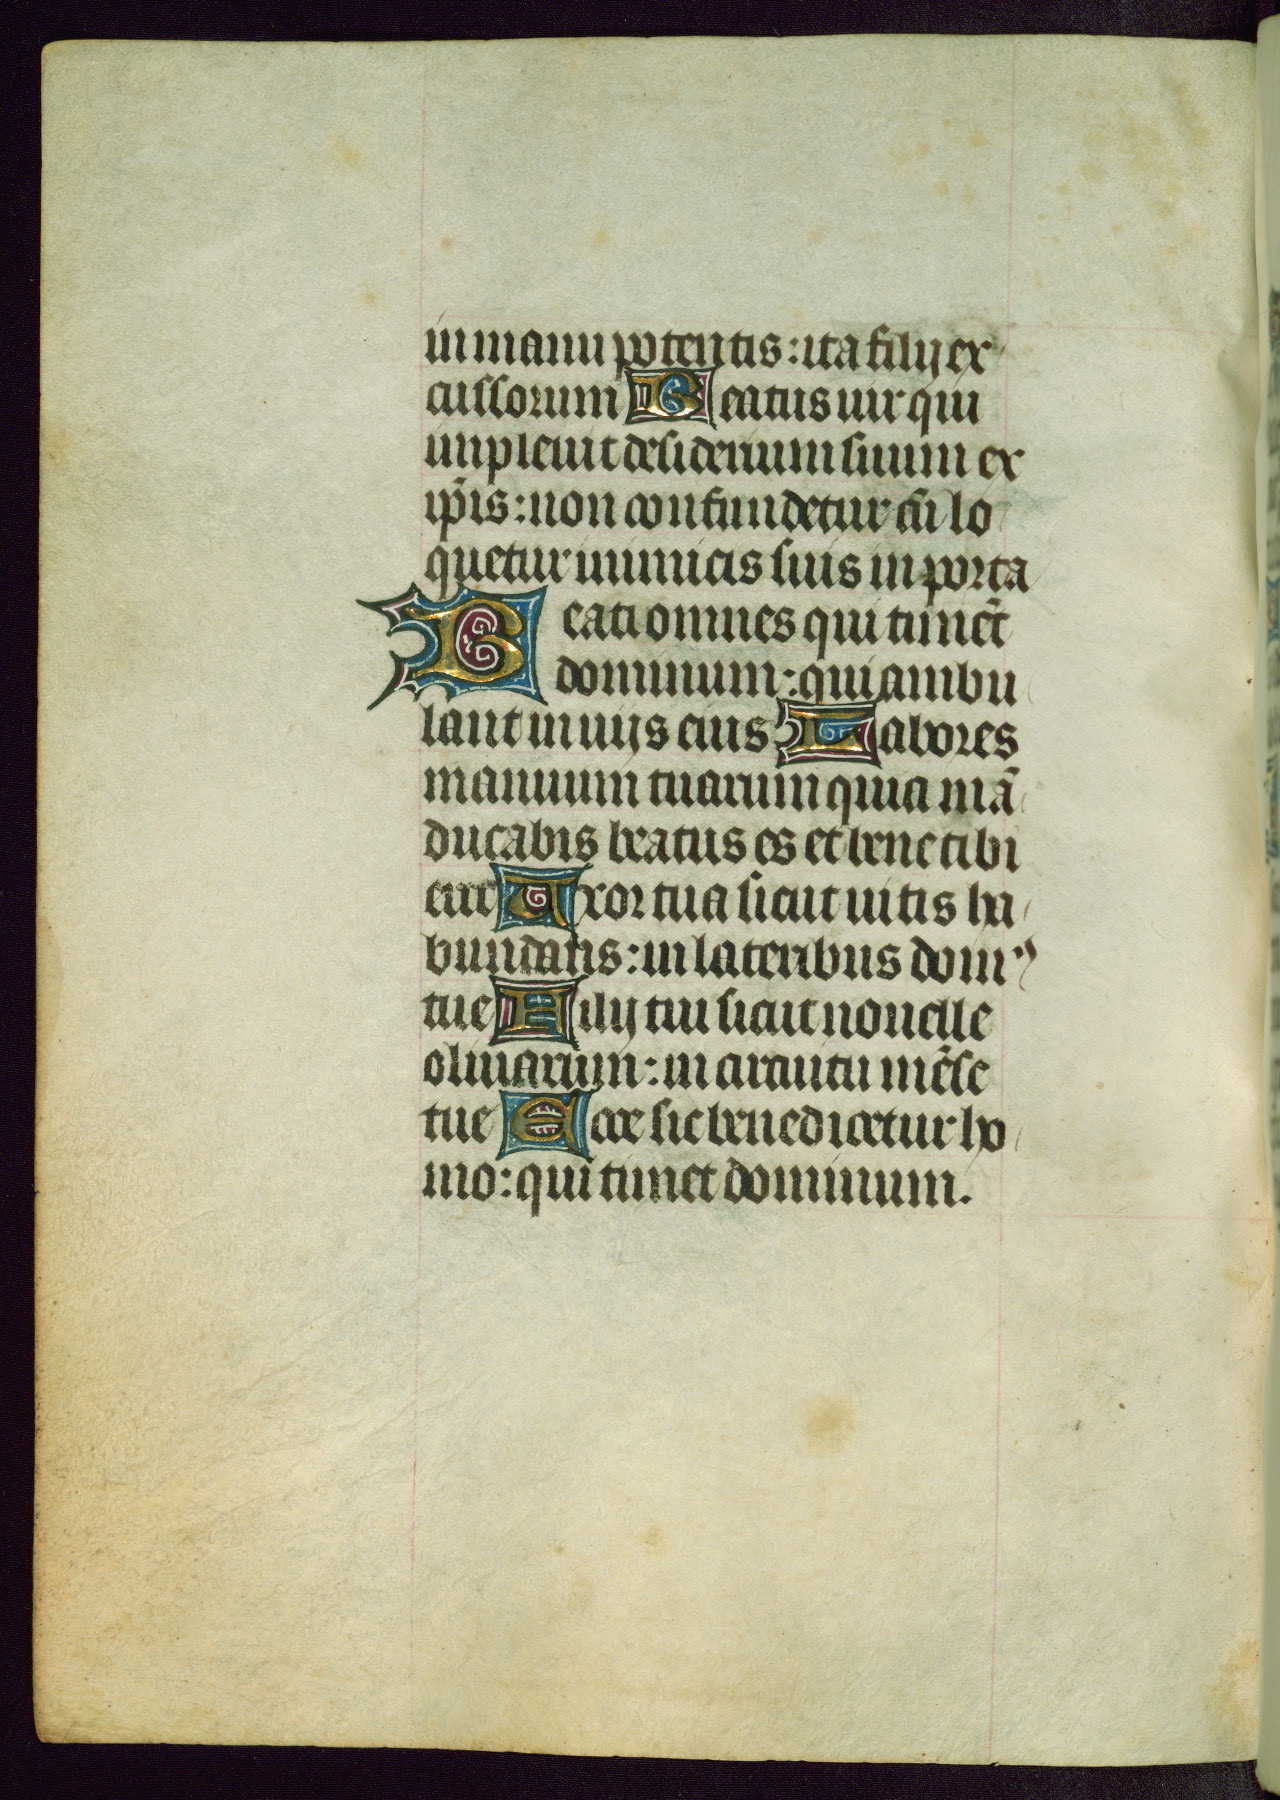 in manu potentis: ita filij ex
cussorum Beatus uir qui
impleuit desiderium suum ex
ip̄is: non confundetur cū lo
quetur inimicis suis in porta
Beati omnes qui timēt
dominum: qui ambu
lant in uijs eius Labores
manuum tuarum quia mā
ducabis beatus es et bene tibi
erit Uxor tua sicut uitis ha
bundans: in lateribus domꝰ
tue Filij tui sicut nouelle
oliuarum: in circuitu mēse
tue Ecce sic benedicetur ho
mo: qui timet dominum.